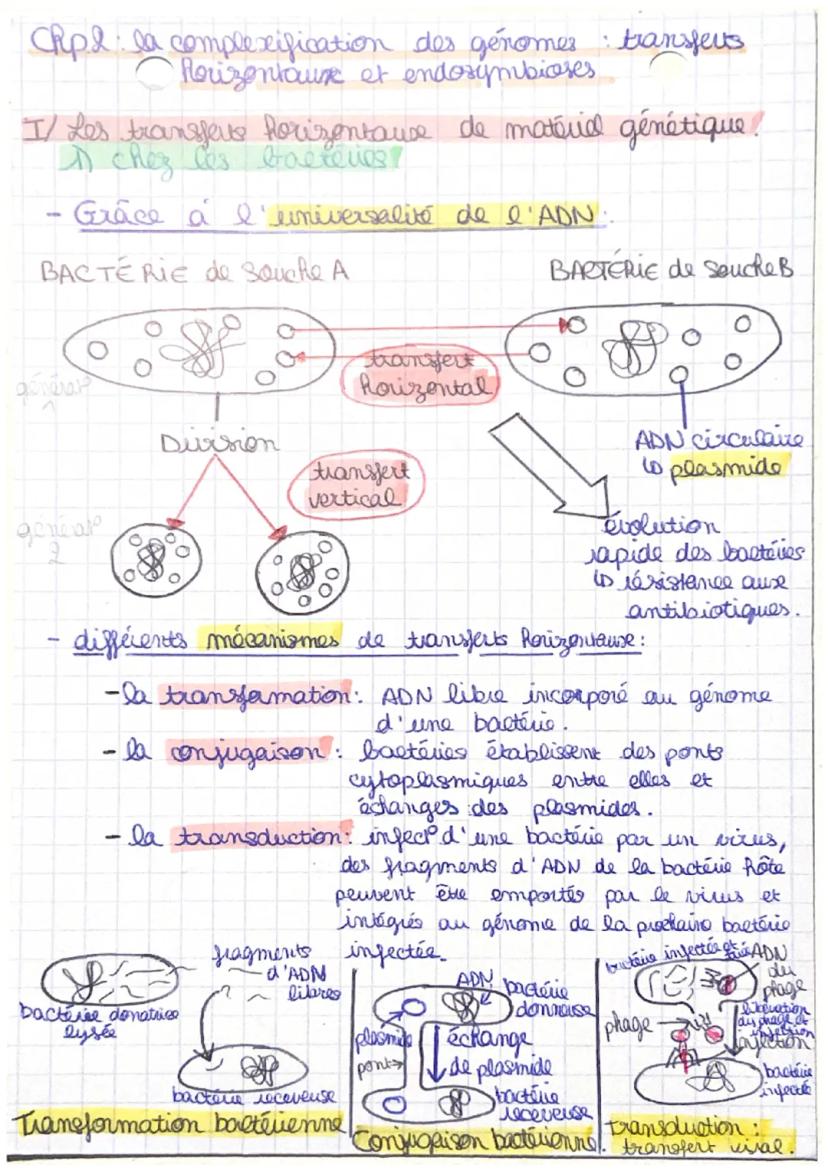 Chp2 : la complexification des génomes : transferts
horizontaux et endosymbioses
I/ Les transferts horizontaux de matériel génétique.
1) chez les bactéries
- Grâce à l'universalité de l'ADN.
BACTÉRIE de souche A
BACTÉRIE de souche B
transfert
horizontal
générat°
1
Division
ADN circulaire
↳ plasmide
transfert
vertical
générat°
2
évolution
rapide des bactéries
↳ résistance aux
antibiotiques.
- différents mécanismes de transferts horizontaux :
- la transformation : ADN libre incorporé au génome
d'une bactérie.
- la conjugaison : bactéries établissent des ponts
cytoplasmiques entre elles et
échanges des plasmides.
- la transduction : infect° d'une bactérie par un virus,
des fragments d'ADN de la bactérie hôte
peuvent être emportés par le virus et
intégrés au génome de la prochaine bactérie
infectée.
bactérie donatrice
lysée
fragments
d'ADN
libres
bactérie receveuse
Transformation bactérienne
ADN
bactérie
donneuse
plasmide
pont
échange
de plasmide
bactérie
receveuse
Conjugaison bactérienne.
bactérie infectée et
ADN
du
phage
phage
libération
du phage et
injection
bactérie
infectée
Transduction :
transfert viral.